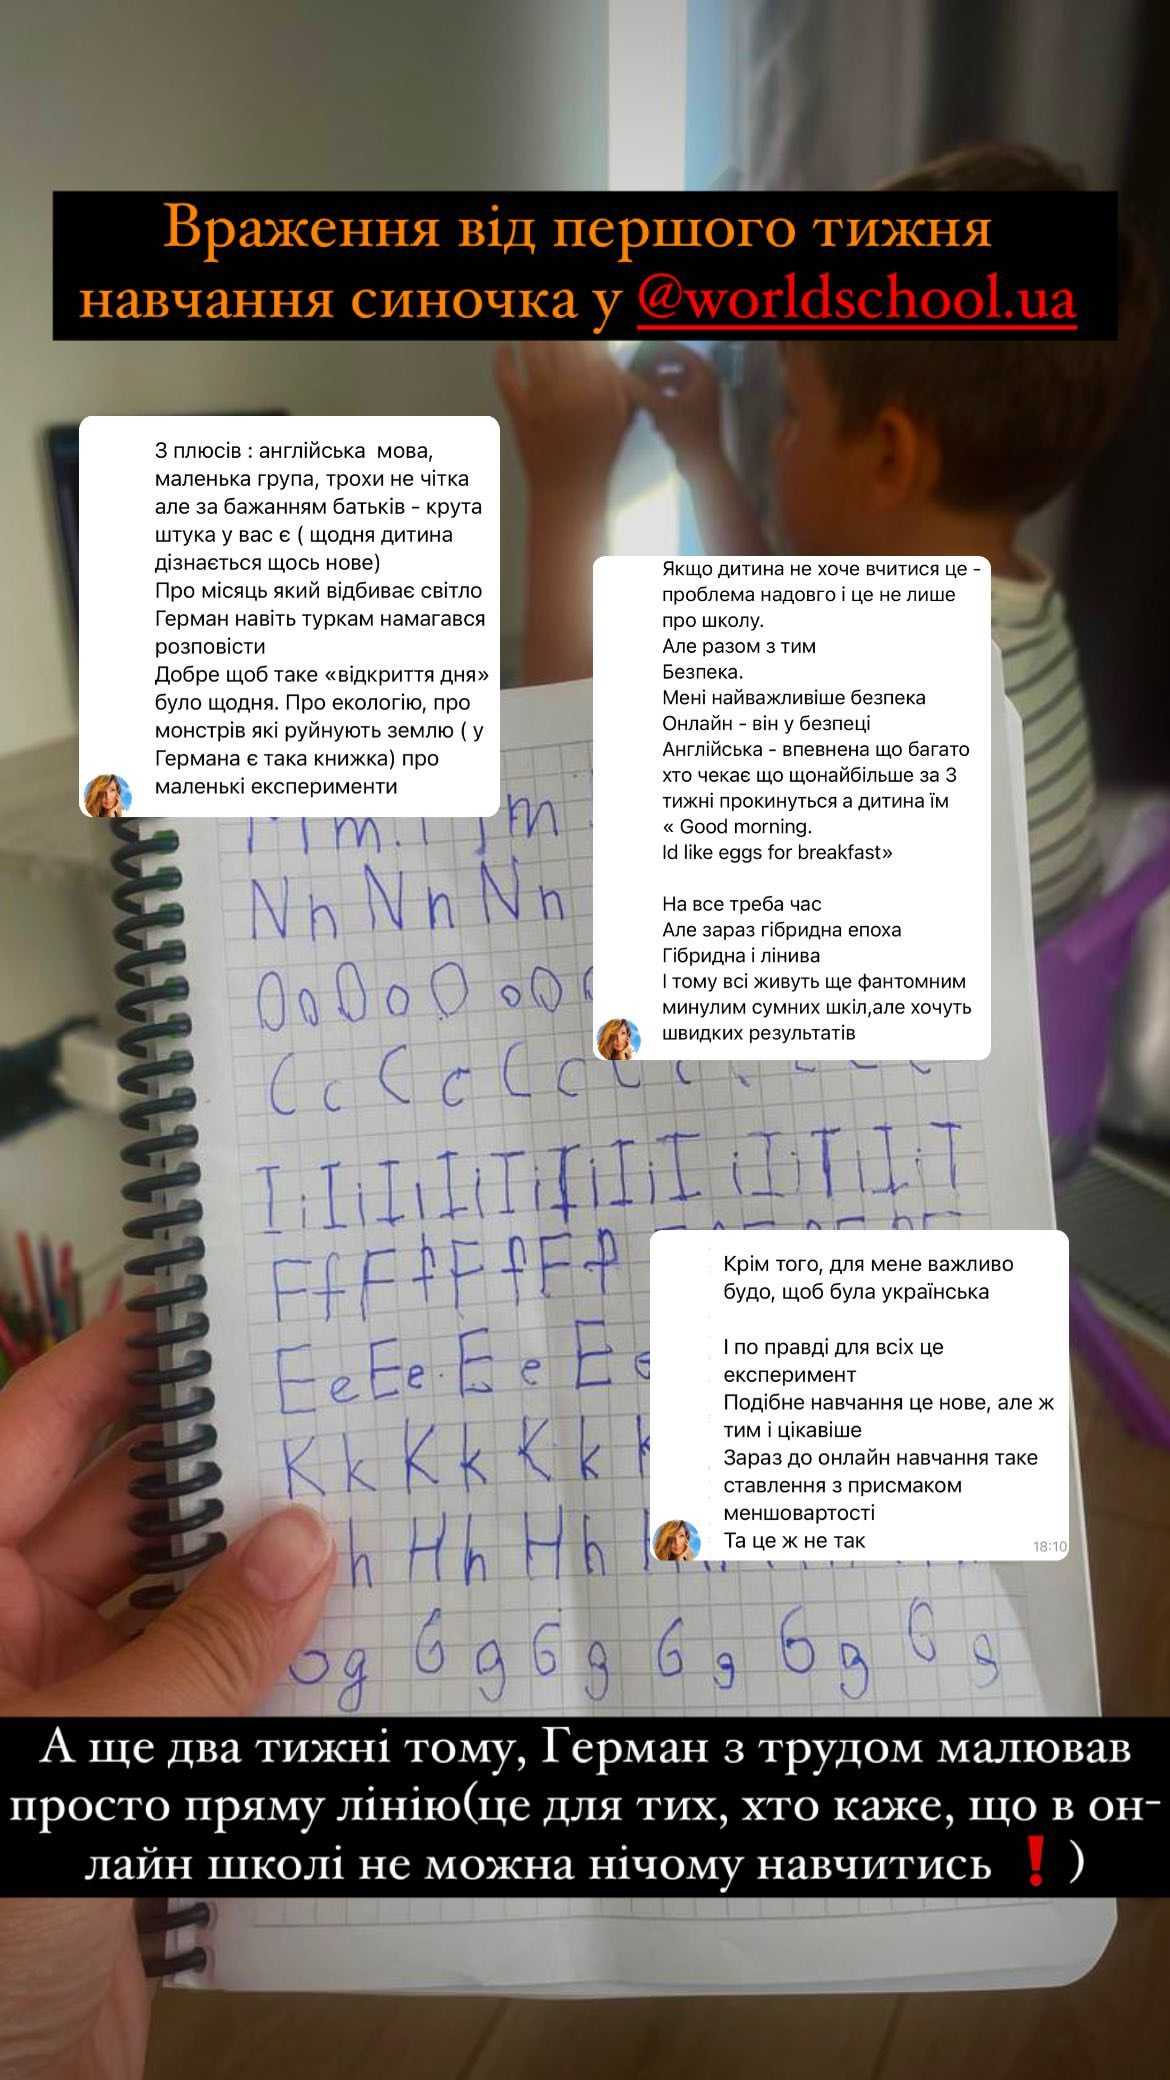 Враження від першого тижня
навчання синочка у @worldschool.ua
З плюсів : англійська  мова,
маленька група, трохи не чітка
але за бажанням батьків - крута
штука у вас є ( щодня дитина
дізнається щось нове)
Про місяць який відбиває світло
Герман навіть туркам намагався
розповісти
Добре щоб таке «відкриття дня»
було щодня. Про екологію, про
монстрів які руйнують землю ( у
Германа є така книжка) про
маленькі експерименти
Якщо дитина не хоче вчитися це -
проблема надовго і це не лише
про школу.
Але разом з тим
Безпека.
Мені найважливіше безпека
Онлайн - він у безпеці
Англійська - впевнена що багато
хто чекає що щонайбільше за 3
тижні прокинуться а дитина їм
« Good morning.
Id like eggs for breakfast»
На все треба час
Але зараз гібридна епоха
Гібридна і лінива
І тому всі живуть ще фантомним
минулим сумних шкіл,але хочуть
швидких результатів
Nn Nn Nn
Oo Oo O o O
Cc Cc Cc
Ii Ii Ii Ii Ii Ii Ii I i Ii Ii Ii I
Ff Ff Ff Ff
Ee Ee. Ee Ee
Kk Kk Kk k
h Hh Hh
g G g G g G g G g G g
Крім того, для мене важливо
будо, щоб була українська
І по правді для всіх це
експеримент
Подібне навчання це нове, але ж
тим і цікавіше
Зараз до онлайн навчання таке
ставлення з присмаком
меншовартості
Та це ж не так
18:10
А ще два тижні тому, Герман з трудом малював
просто пряму лінію(це для тих, хто каже, що в он-
лайн школі не можна нічому навчитись ❗)